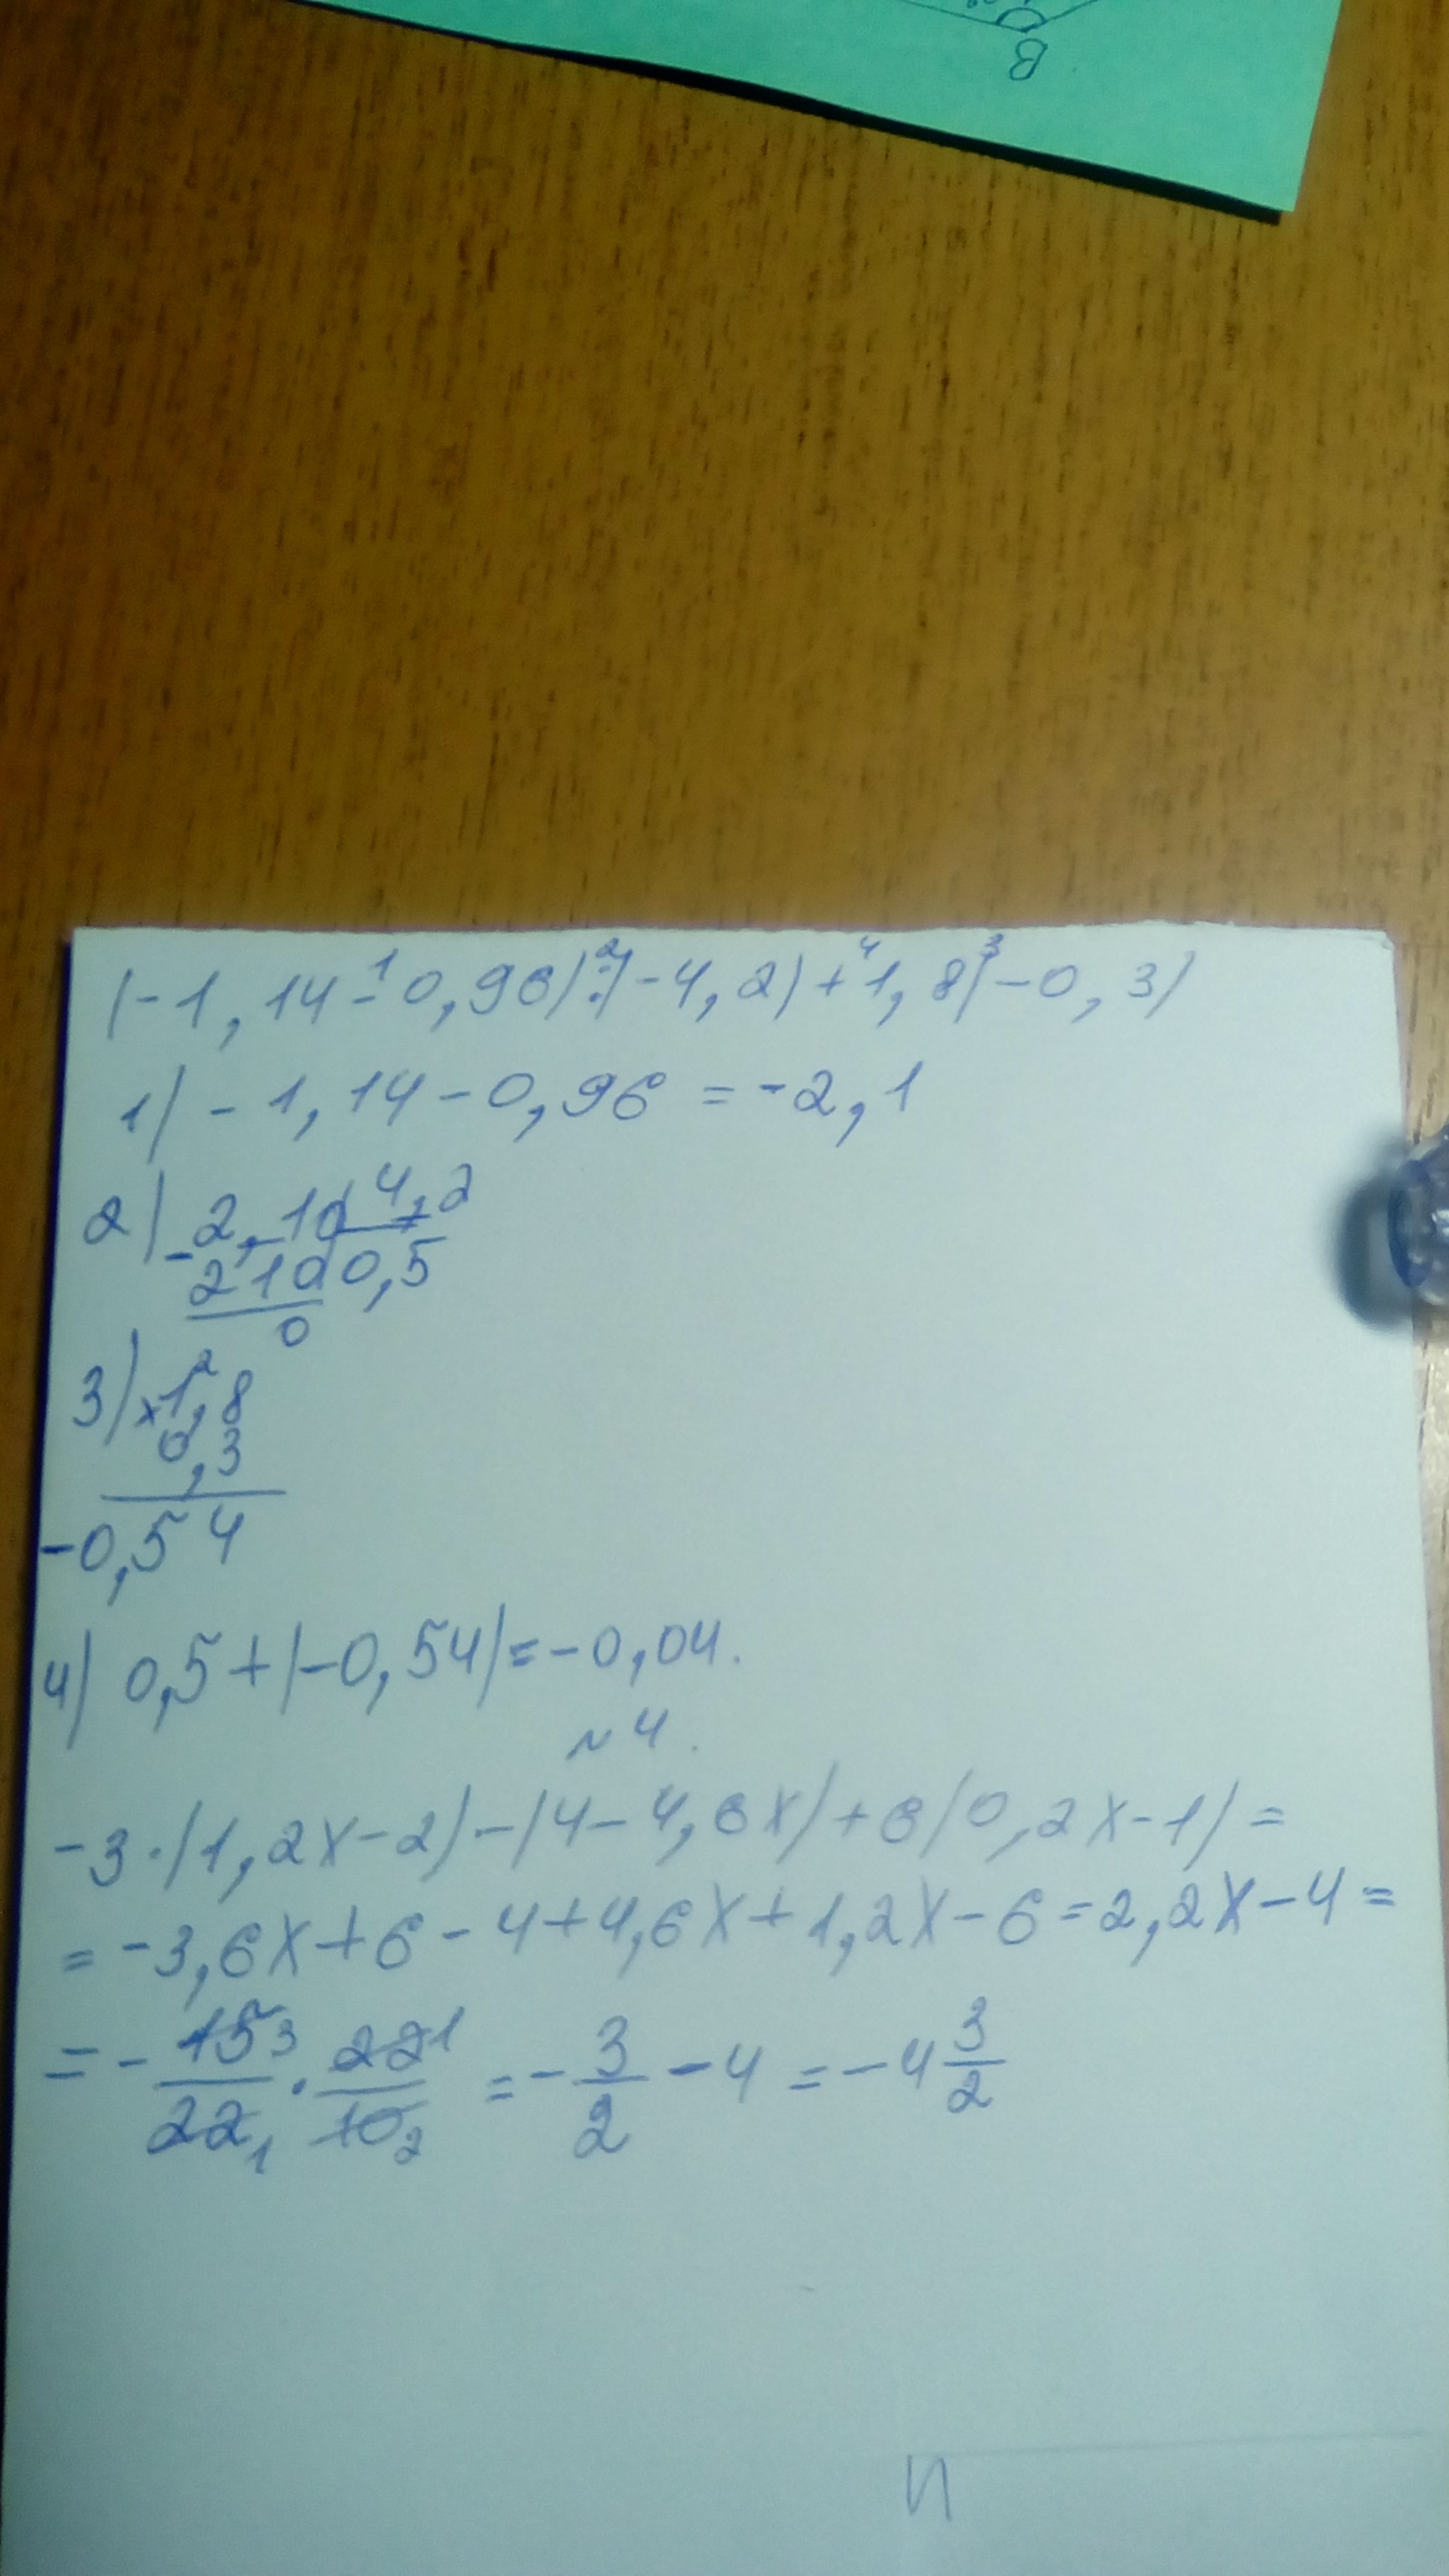 B
(-1,14-¹0,96):²(-4,2)+⁴1,8(³-0,3)
1) -1,14-0,96=-2,1
2) -2,10 4,2
210 0,5
0
2
3) ×1,8
0,3
-0,54
4) 0,5+(-0,54)=-0,04.
№4.
-3·(1,2x-2)-(4-4,6x)+6(0,2x-1)=
=-3,6x+6-4+4,6x+1,2x-6=2,2x-4=
=-15 3/22 1·22 1/10 2=-3/2-4=-4 3/2
И